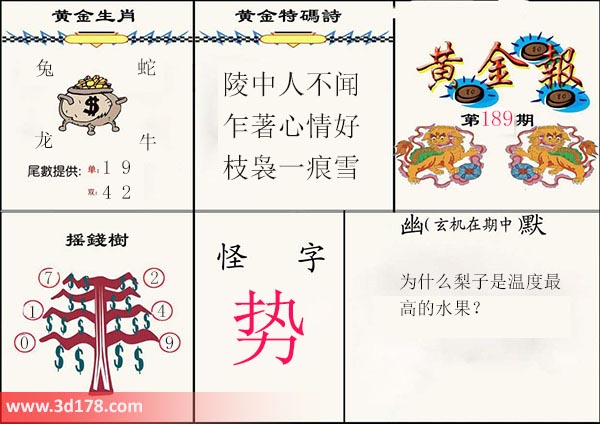 黄金生肖
兔 蛇
$
龙 牛
尾數提供: 单: 1 9
双: 4 2
黄金特碼詩
陵中人不闻
乍著心情好
枝袅一痕雪
黄金報
第189期
摇錢樹
7 2
1 4
0 9
$ $ $ $ $ $ $ $
怪 字
势
幽(玄机在期中)默
为什么梨子是温度最
高的水果？
www.3d178.com